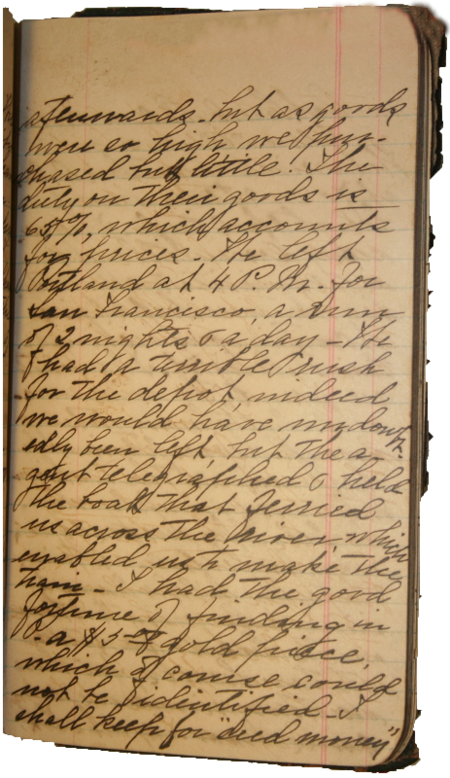 afterwards. but as goods
were so high we pur-
chased but little. The
duty on their goods is
65%, which accounts
for prices. We left
Portland at 4 P.M. for
San Francisco, a run
of 2 nights & a day - We
had a terrible rush
for the depot, indeed
we would have undoubt-
edly been left, but the a-
gent telegraphed & held
the boat that ferried
us across the river, which
enabled us to make the
train - I had the good
fortune of finding in
a $5 gold piece,
which of course could
not be identified. I
shall keep for "deed money"